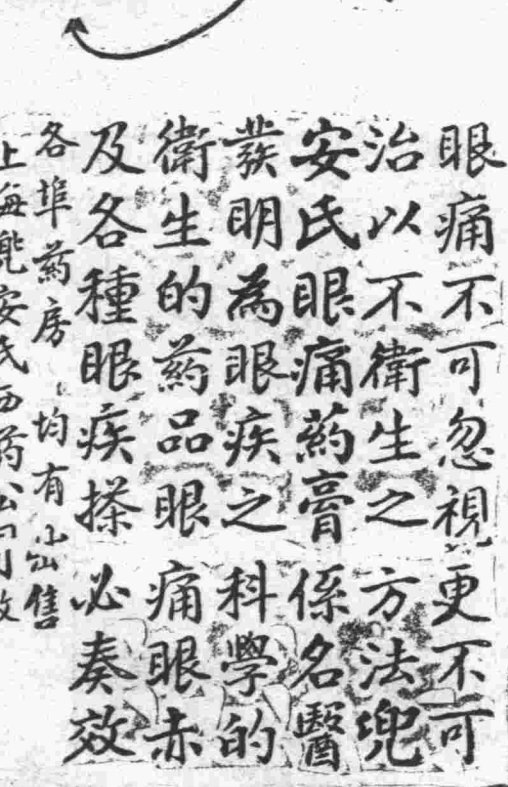 眼痛不可忽視更不可
治以不衛生之方法兜
安氏眼痛葯膏係名醫
發明為眼疾之科學的
衛生的葯品眼痛眼赤
及各種眼疾搽必奏效
各埠葯房均有出售
上海兜安氏西葯公司啟